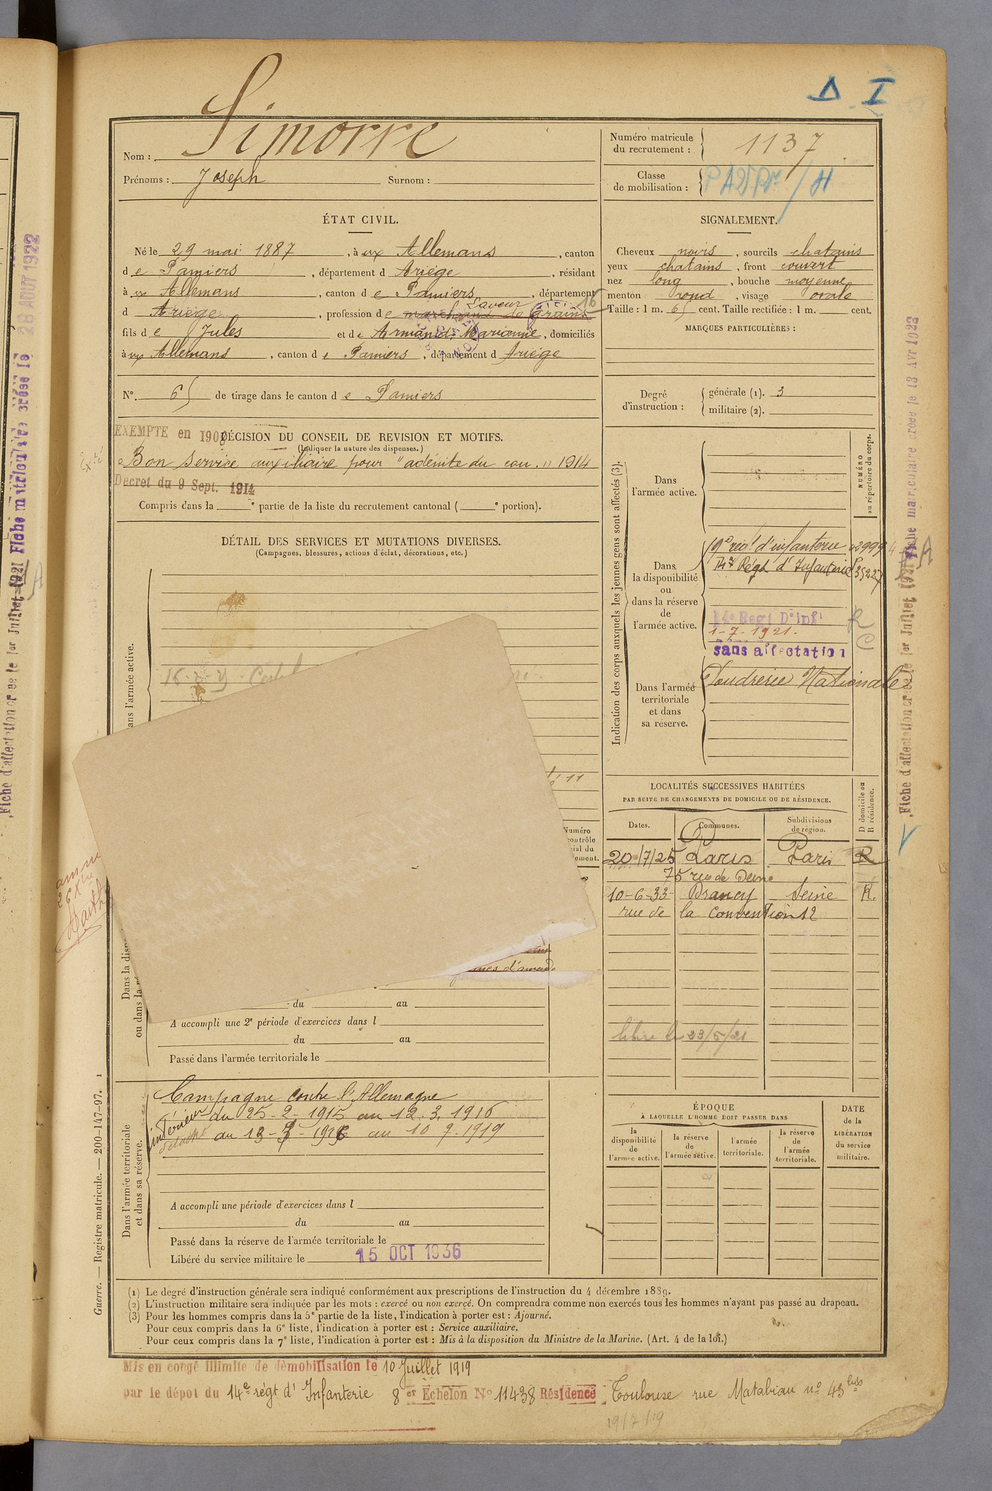 Δ I
Nom : Simorre
Prénoms : Joseph Surnom :
Numéro matricule du recrutement : 1137
Classe de mobilisation :
ÉTAT CIVIL.
Né le 29 mai 1887, à ux Allemans, canton
d e Pamiers, département d Ariège, résidant
à ux Allemans, canton d e Pamiers, département
d Ariège, profession d e marchand de grains
fils d e Jules et d e Marianne, domiciliés
à ux Allemans, canton d e Pamiers, département d Ariège
N° 65 de tirage dans le canton d e Pamiers
SIGNALEMENT.
Cheveux noirs, sourcils chatains
yeux chatains, front couvert
nez long, bouche moyenne
menton rond, visage ovale
Taille : 1 m. 65 cent. Taille rectifiée : 1 m. cent.
MARQUES PARTICULIÈRES :
Degré d'instruction : générale (1). 3
militaire (2).
EXEMPTÉ en 190
DÉCISION DU CONSEIL DE REVISION ET MOTIFS.
(Indiquer la nature des dispenses.)
Bon service auxiliaire pour "adénite du cou." 1914
Décret du 9 Sept. 1914
Compris dans la e partie de la liste du recrutement cantonal ( e portion).
DÉTAIL DES SERVICES ET MUTATIONS DIVERSES.
(Campagnes, blessures, actions d'éclat, décorations, etc.)
Indication des corps auxquels les jeunes gens sont affectés (3).
NUMÉRO au répertoire du corps.
Dans l'armée active.
Dans la disponibilité ou dans la réserve de l'armée active.
d'infanterie
Régt d'Infanterie
14e Regt D'inf
1-7-1921.
sans affectation
Dans l'armée territoriale et dans sa réserve.
Poudrerie Nationale
R
C
LOCALITÉS SUCCESSIVES HABITÉES
PAR SUITE DE CHANGEMENTS DE DOMICILE OU DE RÉSIDENCE.
Dates. Communes. Subdivisions de région. D domicile ou R résidence.
20/7/25 Paris Paris R
75 rue de Seine
10-6-33 Seine R.
rue de la Convention 12
23/5/21
ÉPOQUE
À LAQUELLE L'HOMME DOIT PASSER DANS
la disponibilité de l'armée active.
la réserve de l'armée active.
l'armée territoriale.
la réserve de l'armée territoriale.
DATE de la LIBÉRATION du service militaire.
du au
A accompli une 2e période d'exercices dans l
du au
Passé dans l'armée territoriale le
Dans l'armée territoriale et dans sa réserve.
Campagne contre l'Allemagne
intérieur du 25-2-1915 au 12.3.1916
au 10 7-1919
A accompli une période d'exercices dans l
du au
Passé dans la réserve de l'armée territoriale le
Libéré du service militaire le 15 OCT 1936
(1) Le degré d'instruction générale sera indiqué conformément aux prescriptions de l'instruction du 4 décembre 1889.
(2) L'instruction militaire sera indiquée par les mots : exercé ou non exercé. On comprendra comme non exercés tous les hommes n'ayant pas passé au drapeau.
(3) Pour les hommes compris dans la 5e partie de la liste, l'indication à porter est : Ajourné.
Pour ceux compris dans la 6e liste, l'indication à porter est : Service auxiliaire.
Pour ceux compris dans la 7e liste, l'indication à porter est : Mis à la disposition du Ministre de la Marine. (Art. 4 de la loi.)
Mis en congé illimité de démobilisation le 10 Juillet 1919
par le dépôt du 14e régt d'Infanterie 8e Echelon N° 11438 Résidence Toulouse rue Matabiau n° 43 bis
Guerre. — Registre matricule. — 200-147-97.